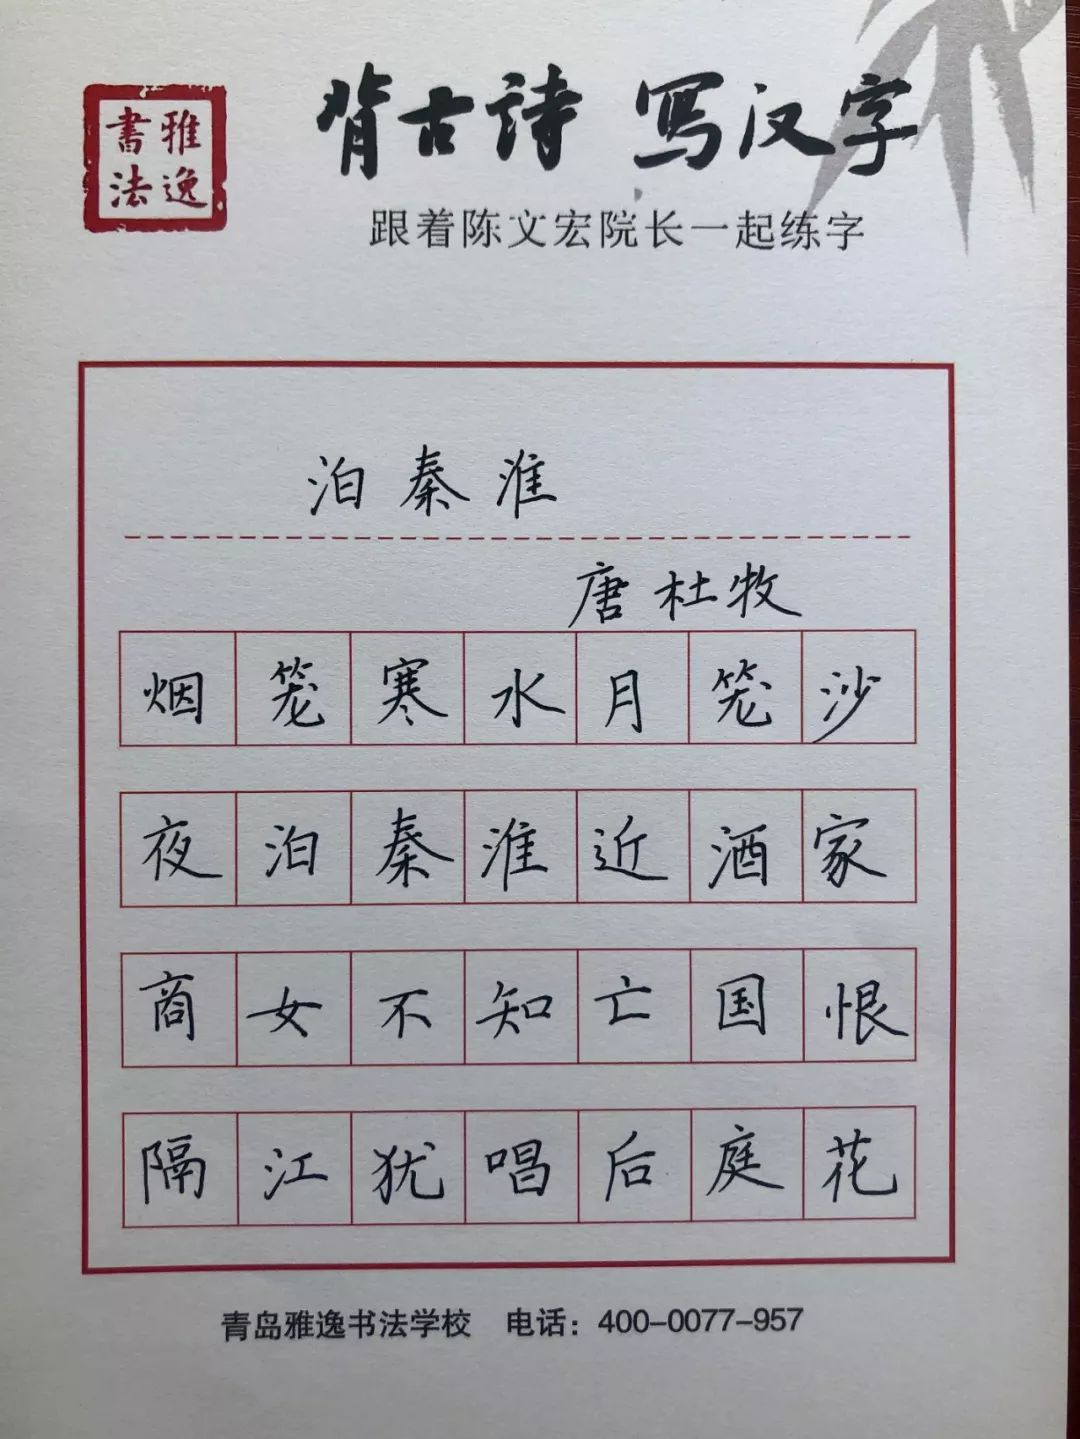 雅逸書法
背古诗 写汉字
跟着陈文宏院长一起练字
泊秦淮
唐 杜牧
烟笼寒水月笼沙
夜泊秦淮近酒家
商女不知亡国恨
隔江犹唱后庭花
青岛雅逸书法学校 电话：400-0077-957